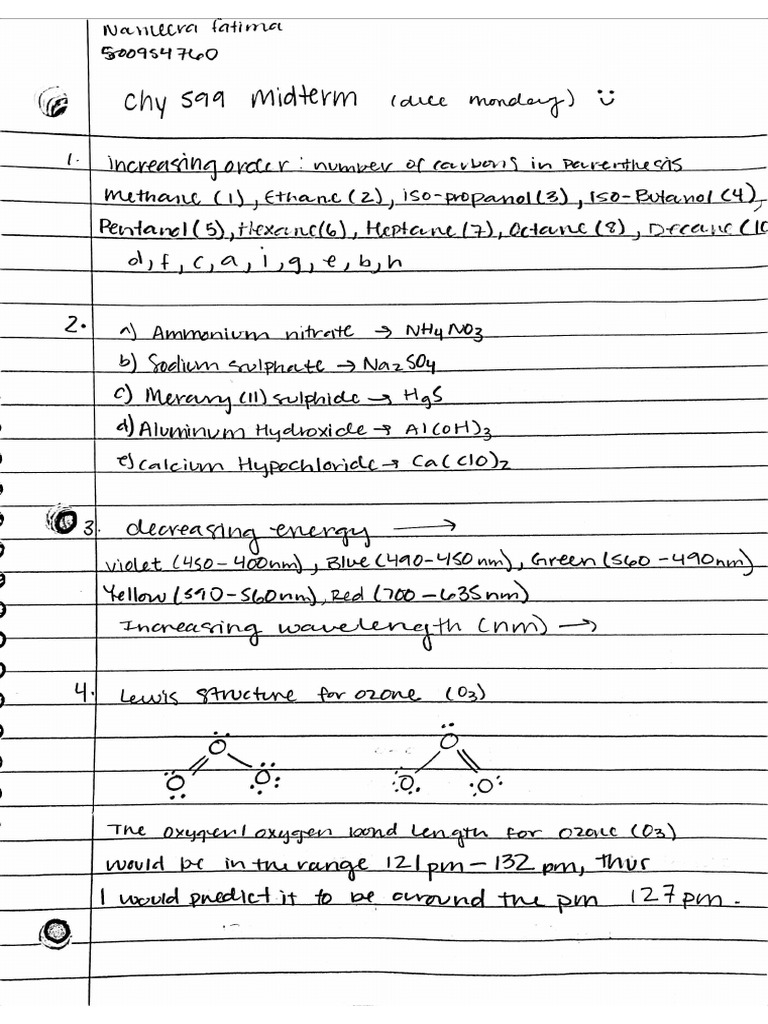 Nameera fatima
500954760
Chy 599 midterm (due monday) :)
1. increasing order: number of carbons in parenthesis
Methane (1), Ethane (2), iso-propanol (3), Iso-Butanol (4),
Pentanol (5), Hexane (6), Heptane (7), Octane (8), Decane (10
d, f, c, a, i, g, e, b, h
2. a) Ammonium nitrate → NH4NO3
b) Sodium sulphate → Na2SO4
c) Mercury (II) sulphide → HgS
d) Aluminum Hydroxide → Al(OH)3
e) Calcium Hypochloride → Ca(ClO)2
3. decreasing energy →
violet (450-400nm), Blue (490-450nm), Green (560-490nm)
Yellow (590-560nm), Red (700-635nm)
Increasing wavelength (nm) →
4. Lewis structure for ozone (O3)
O O
O O O O
The oxygen/oxygen bond length for ozone (O3)
would be in the range 121pm-132pm, thus
I would predict it to be around the pm 127pm.